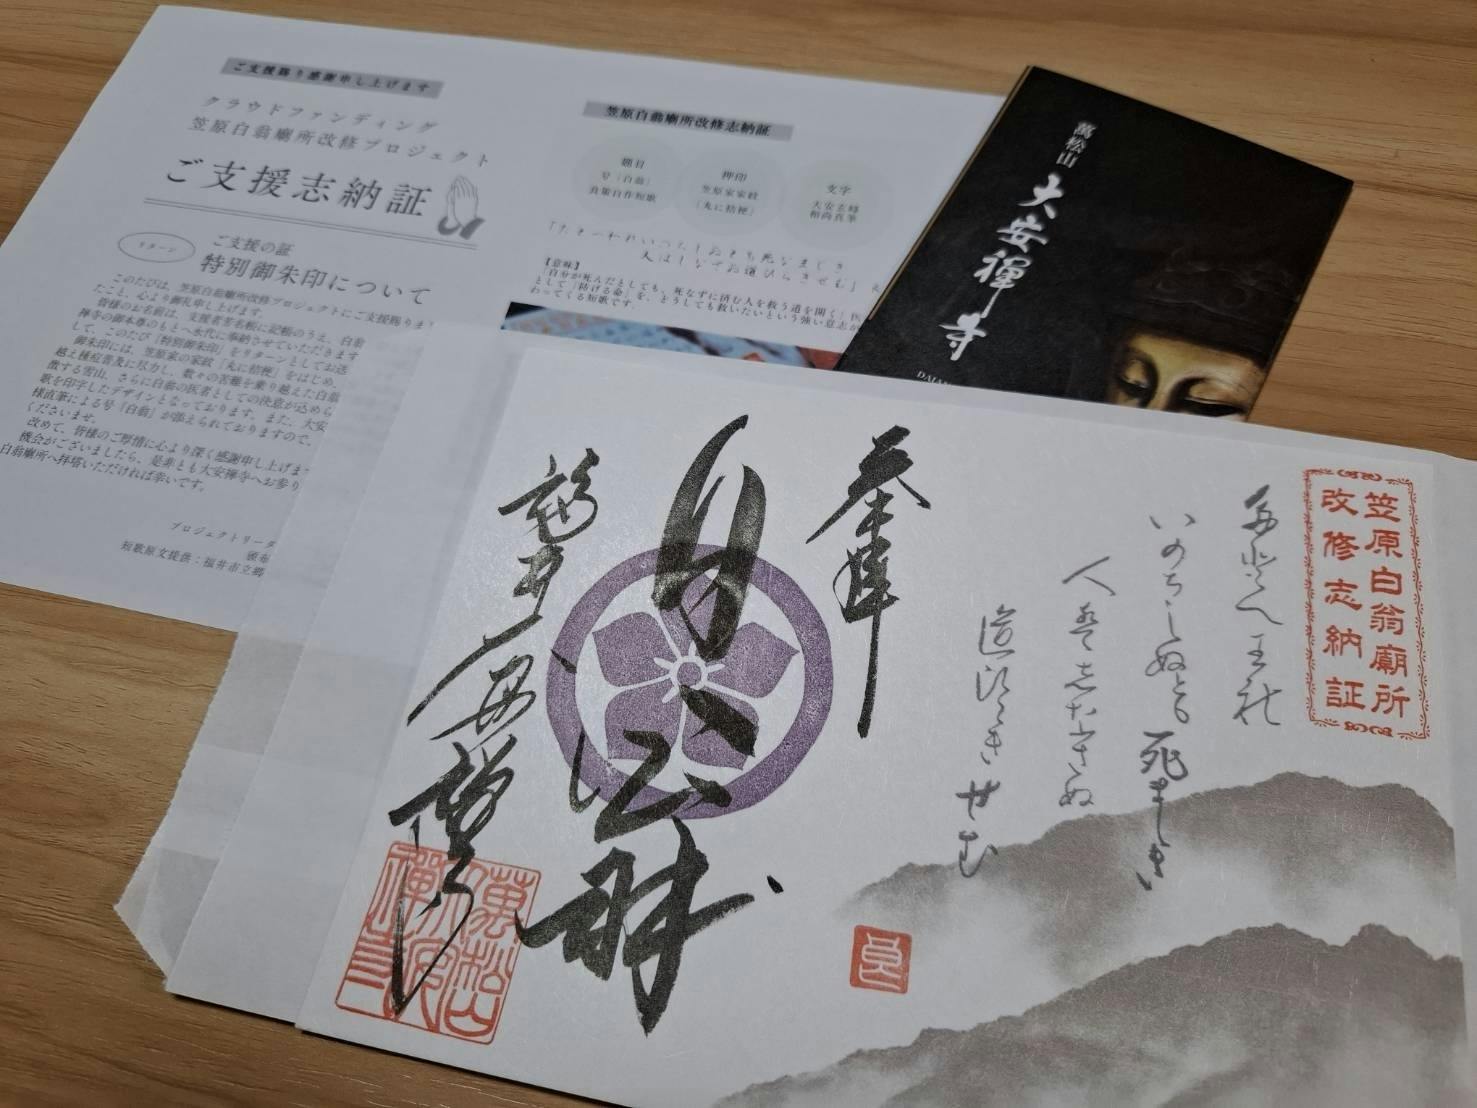 ご支援賜り感謝申し上げます
クラウドファンディング
笠原白翁廟所改修プロジェクト
ご支援志納証
リターン
ご支援の証
特別御朱印について
このたびは、笠原白翁廟所改修プロジェクトにご支援賜りま
たこと、心より御礼申し上げます。
皆様のお名前は、支援者芳名帳に記帳のうえ、白翁
禅寺の御本尊のもとへ永代に奉納させていただきます
して、このたび「特別御朱印」をリターンとしてお送
御朱印には、笠原家の家紋「丸に桔梗」をはじめ、
越え種痘普及に尽力し、数々の苦難を乗り越えた白翁
徴する雪山、さらに白翁の医者としての決意が込めら
歌を印字したデザインとなっております。また、大安
様直筆による号「白翁」が添えられておりますので、
くださいませ。
改めて、皆様のご厚情に心より深く感謝申し上げま
機会がございましたら、是非とも大安禅寺へお参り
白翁廟所へ拝塔いただければ幸いです。
プロジェクトリータ
短歌原文提供：福井市立郷
笠原白翁廟所改修志納証
題目
号「白翁」
良策自作短歌
押印
笠原家家紋
「丸に桔梗」
文字
大安玄峰
和尚真筆
「たとへわれいのちしぬとも死なましき
人はしなさぬ道ひらきせむ」
【意味】
「自分が死んだとしても、死なずに済む人を救う道を開く」医
として「防げる命」を、どうしても救いたいという強い意志が
わってくる短歌です。
萬松山
大安禅寺
笠原白翁廟所
改修志納証
いのちしぬとも死ましき
道ひらきせむ
奉拝
白翁
大安禅寺
萬松山
大安
禅寺
良